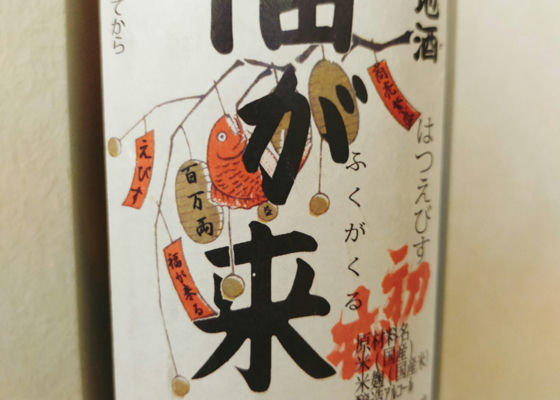 地酒
はつえびす
初
福が来
ふくがくる
商売繁盛
百万両
えびす
福が来る
てから
原材料名
米(国産)
米麹(国産米)
醸造アルコール